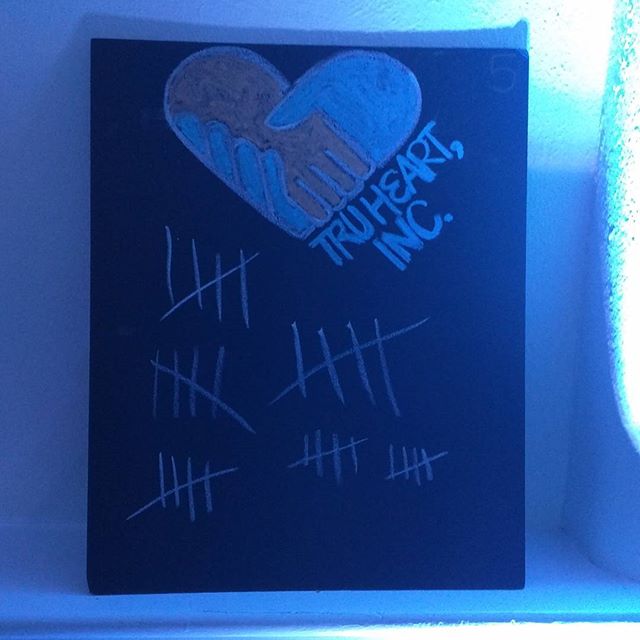 5
TRU HEART,
INC.